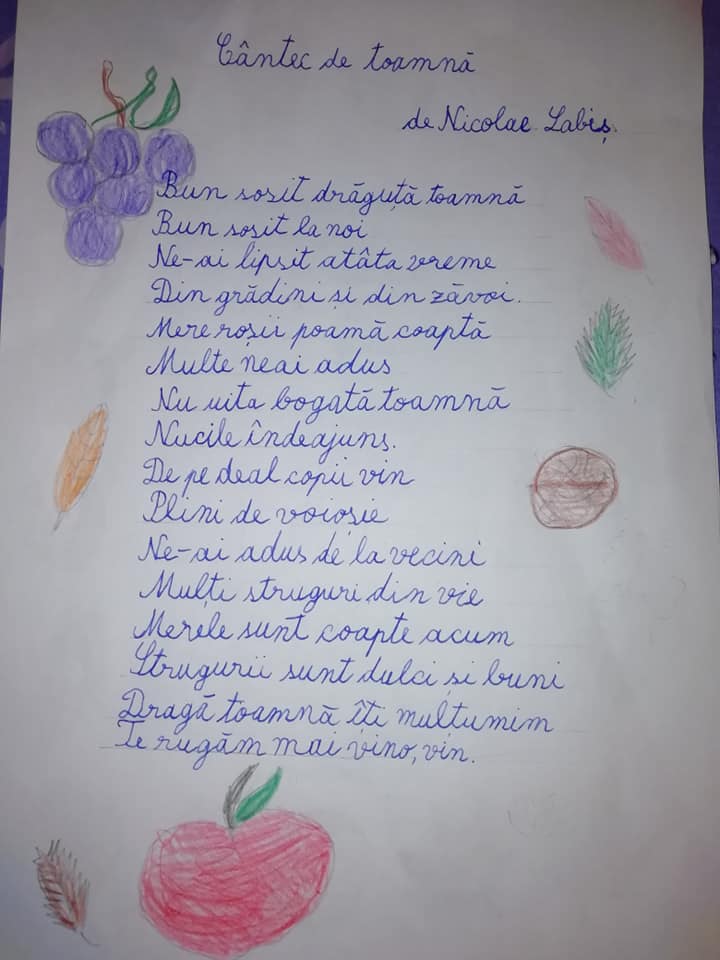 Cântec de toamnă
de Nicolae Labiș.
Bun sosit drăguță toamnă
Bun sosit la noi
Ne-ai lipsit atâta vreme
Din grădini și din zăvoi.
Mere roșii poamă coaptă
Multe neai adus
Nu uita bogată toamnă
Nucile îndeajuns.
De pe deal copii vin
Plini de voioșie
Ne-ai adus de la vecini
Mulți struguri din vie
Merele sunt coapte acum
Strugurii sunt dulci și buni
Dragă toamnă îți multumim
Te rugăm mai vino, vin.